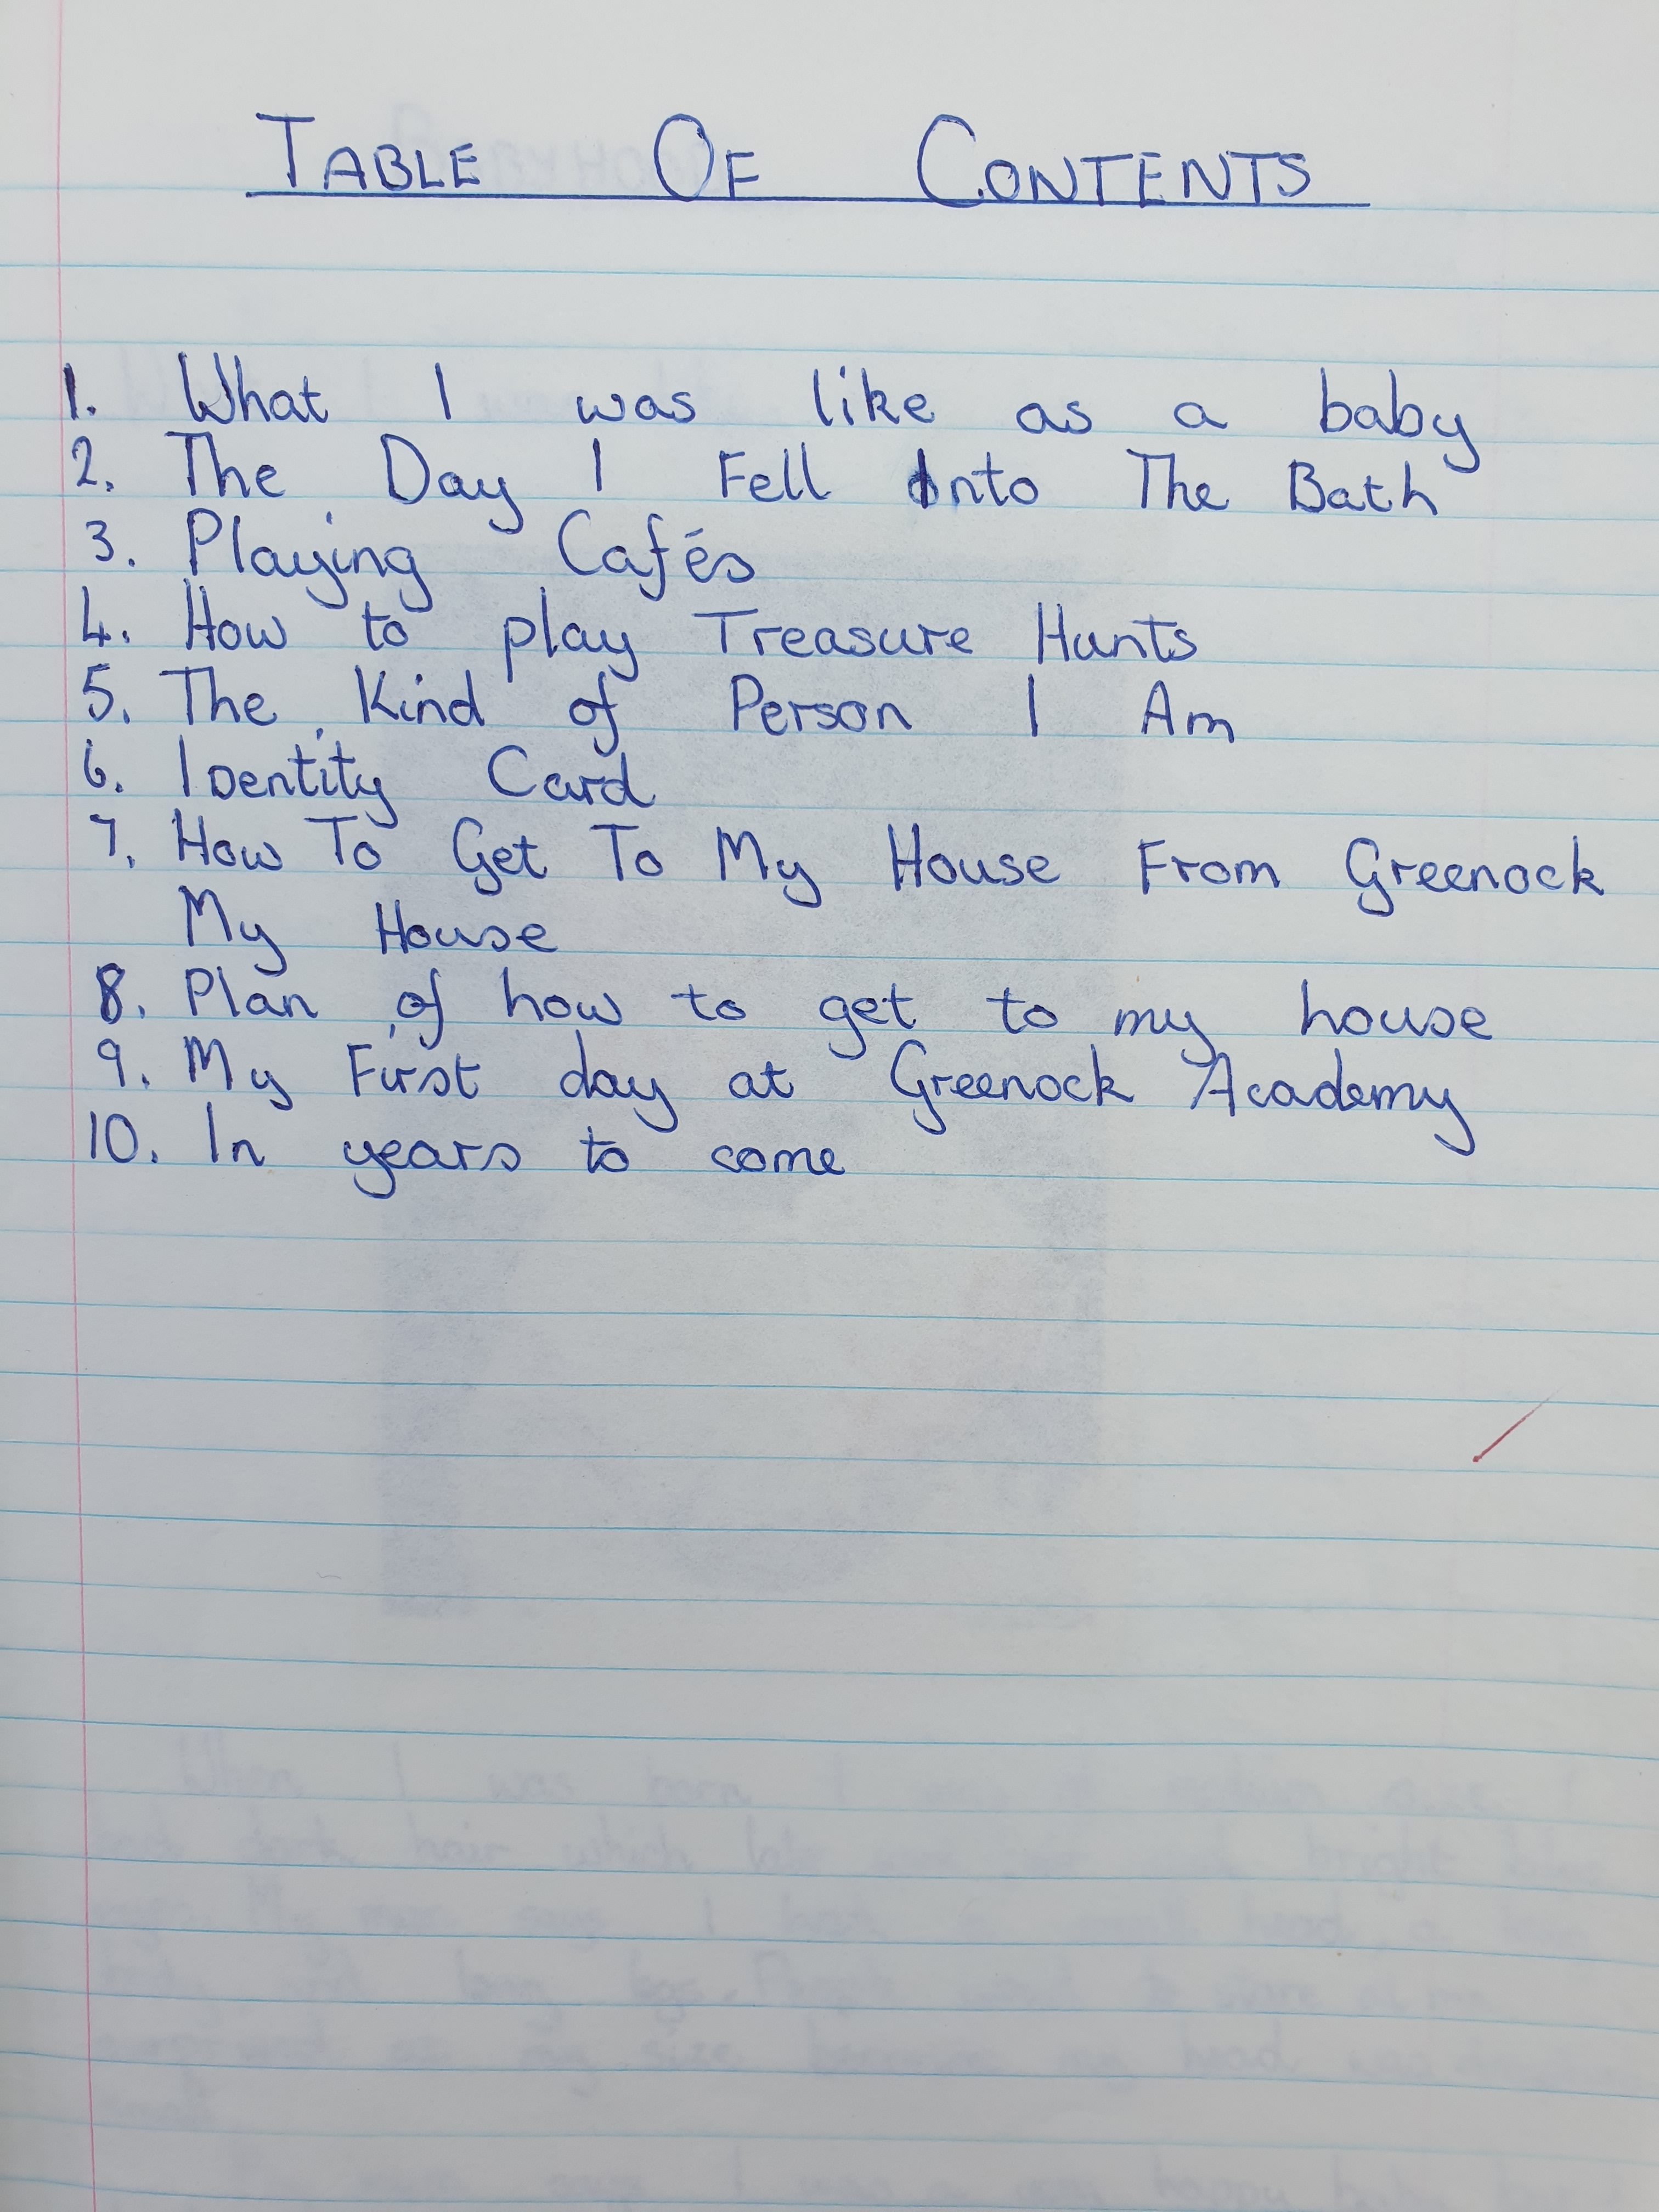 TABLE OF CONTENTS
1. What I was like as a baby
2. The Day I Fell Into The Bath
3. Playing Cafés
4. How to play Treasure Hunts
5. The Kind of Person I Am
6. Identity Card
7. How To Get To My House From Greenock
My House
8. Plan of how to get to my house
9. My First day at Greenock Academy
10. In years to come